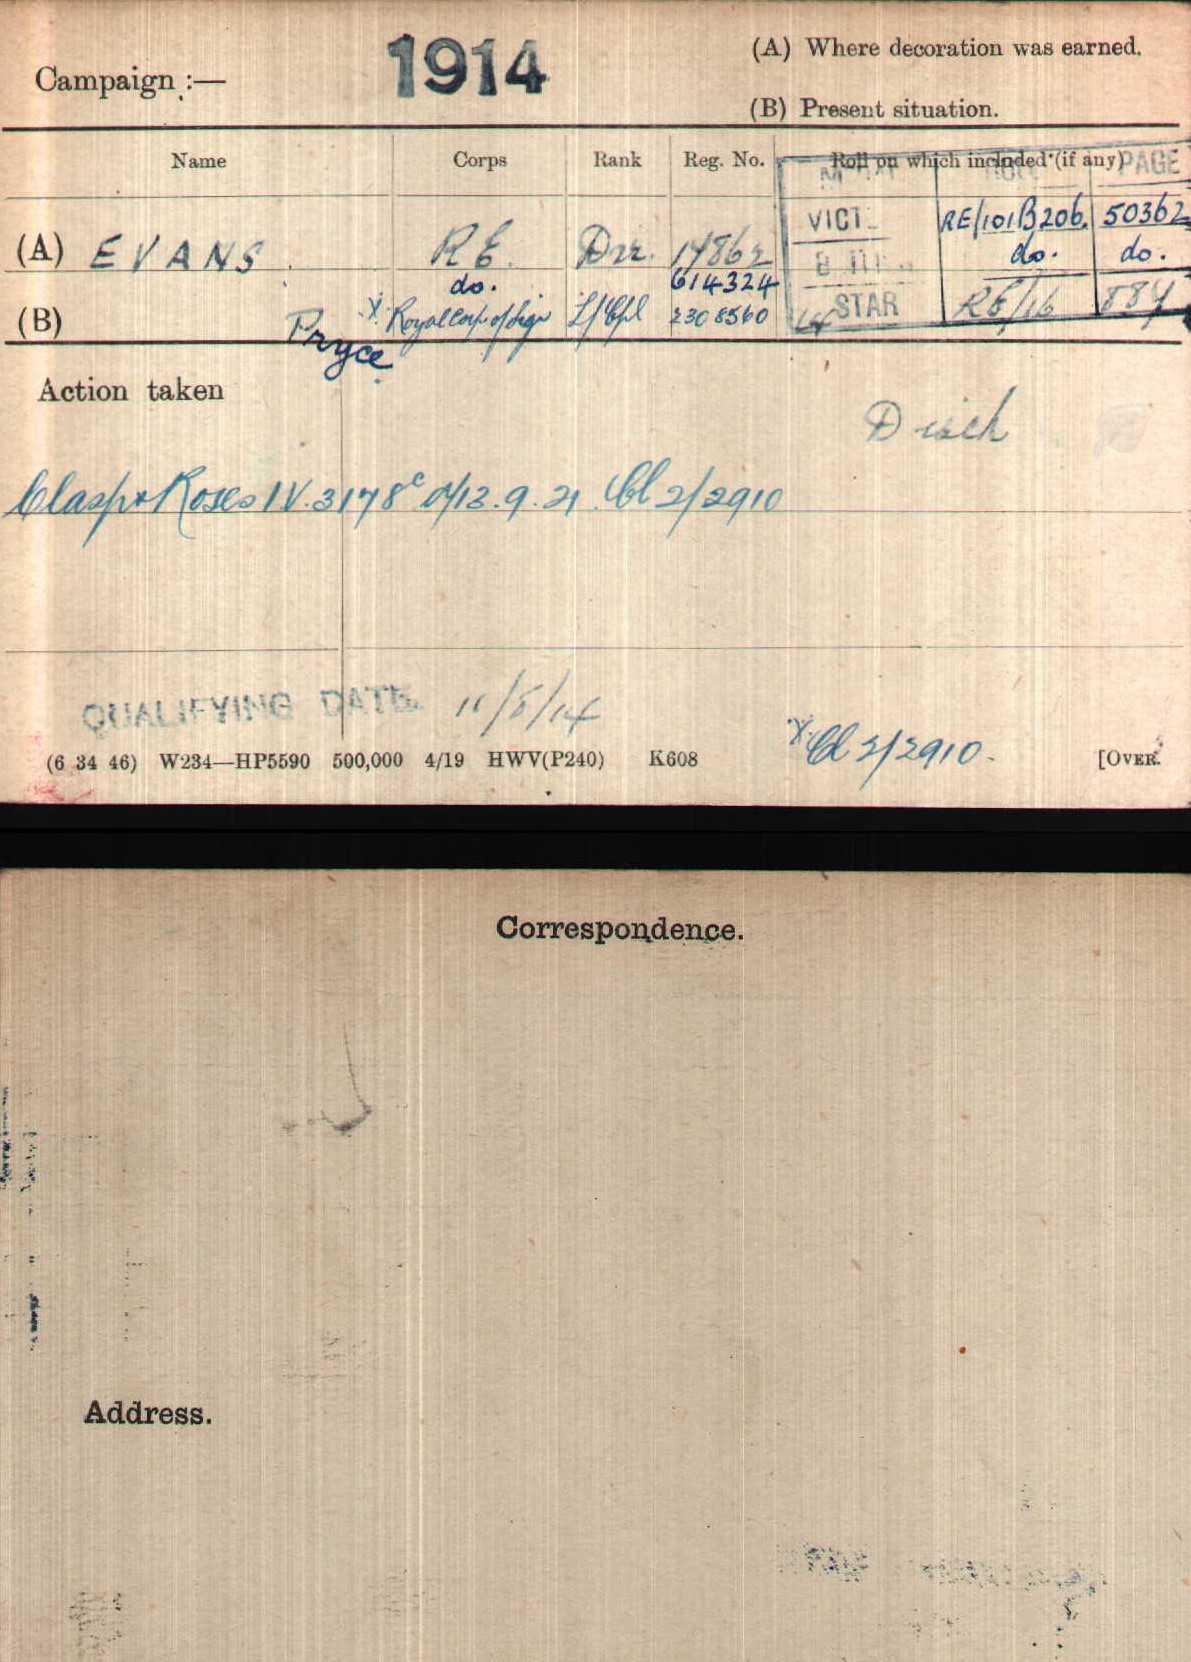 Campaign :— 1914
(A) Where decoration was earned.
(B) Present situation.
Name Corps Rank Reg. No. Roll on which included (if any)
MEDAL ROLL PAGE
(A) EVANS R.E. Dvr. 14862
VICT. RE/101B206. 50362
do. 614324
B do. do.
(B) Pryce x Royal Corp of Sign L/Cpl 2308560
14 STAR RE/16 884
Action taken
Disch
Clasp & Roses IV. 3178c d/13.9.21 Cl 2/2910
QUALIFYING DATE 11/8/14
x Cl 2/2910.
(6 34 46) W234—HP5590 500,000 4/19 HWV(P240) K608 [OVER.
Correspondence.
Address.